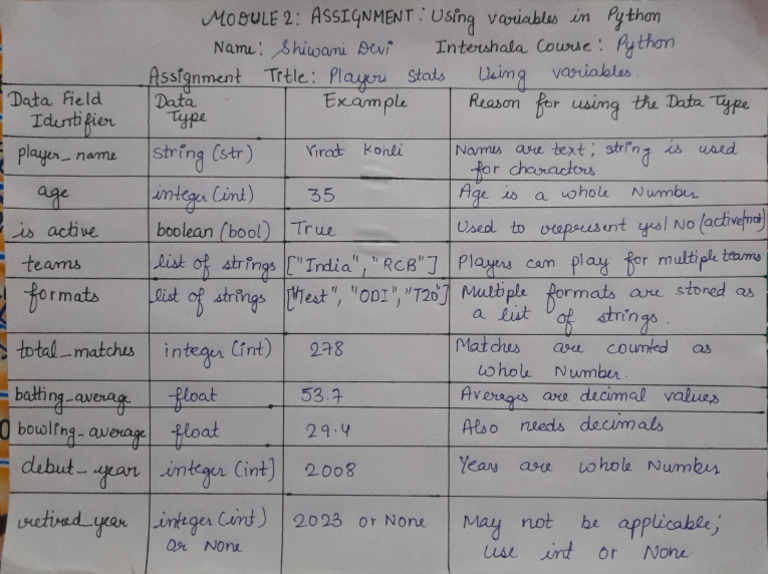 MODULE 2: ASSIGNMENT: Using variables in Python
Name: Shiwani Devi Intershala Course: Python
Assignment Title: Player Stats Using variables.
Data Field Identifier Data Type Example Reason for using the Data Type
player_name string (str) Virat Kohli Names are text; string is used for characters
age integer (int) 35 Age is a whole Number
is active boolean (bool) True Used to represent yes/No (active/not)
teams list of strings ["India", "RCB"] Players can play for multiple teams
formats list of strings ["Test", "ODI", "T20"] Multiple formats are stored as a list of strings.
total_matches integer (int) 278 Matches are counted as whole Number.
batting_average float 53.7 Averages are decimal values
bowling_average float 29.4 Also needs decimals
debut_year integer (int) 2008 Years are whole Number
retired_year integer (int) or None 2023 or None May not be applicable; use int or None.